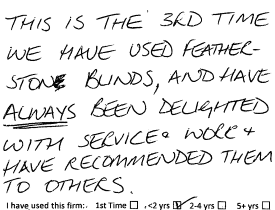 THIS IS THE 3RD TIME
WE HAVE USED FEATHER-
STONE BLINDS, AND HAVE
ALWAYS BEEN DELIGHTED
WITH SERVICE & WORK &
HAVE RECOMMENDED THEM
TO OTHERS.
I have used this firm: 1st Time ☐ <2 yrs ☑ 2-4 yrs ☐ 5+ yrs ☐